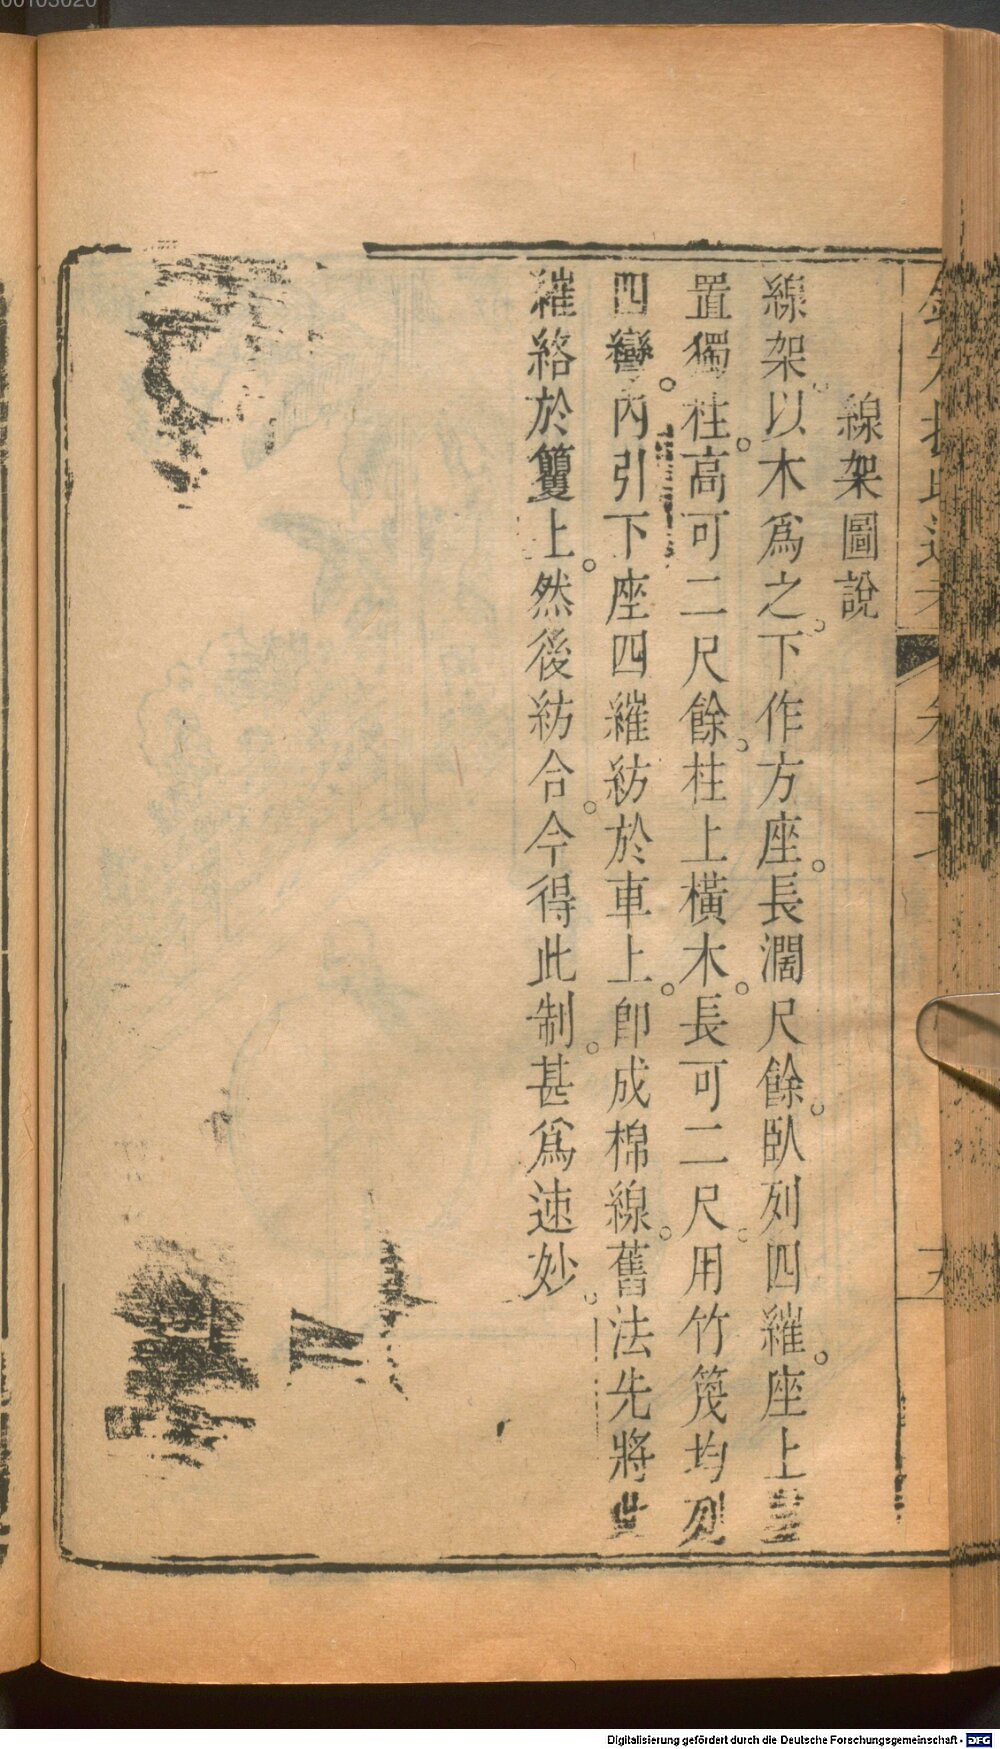 線架圖說
線架。以木爲之。下作方座。長濶尺餘。臥列四繀。座上
置獨柱。高可二尺餘。柱上橫木。長可二尺。用竹篾均列
四彎。內引下座四繀紡於車上。卽成棉線。舊法先將此
繀絡於籰上。然後紡合。今得此制。甚爲速妙。
Digitalisierung gefördert durch die Deutsche Forschungsgemeinschaft - DFG